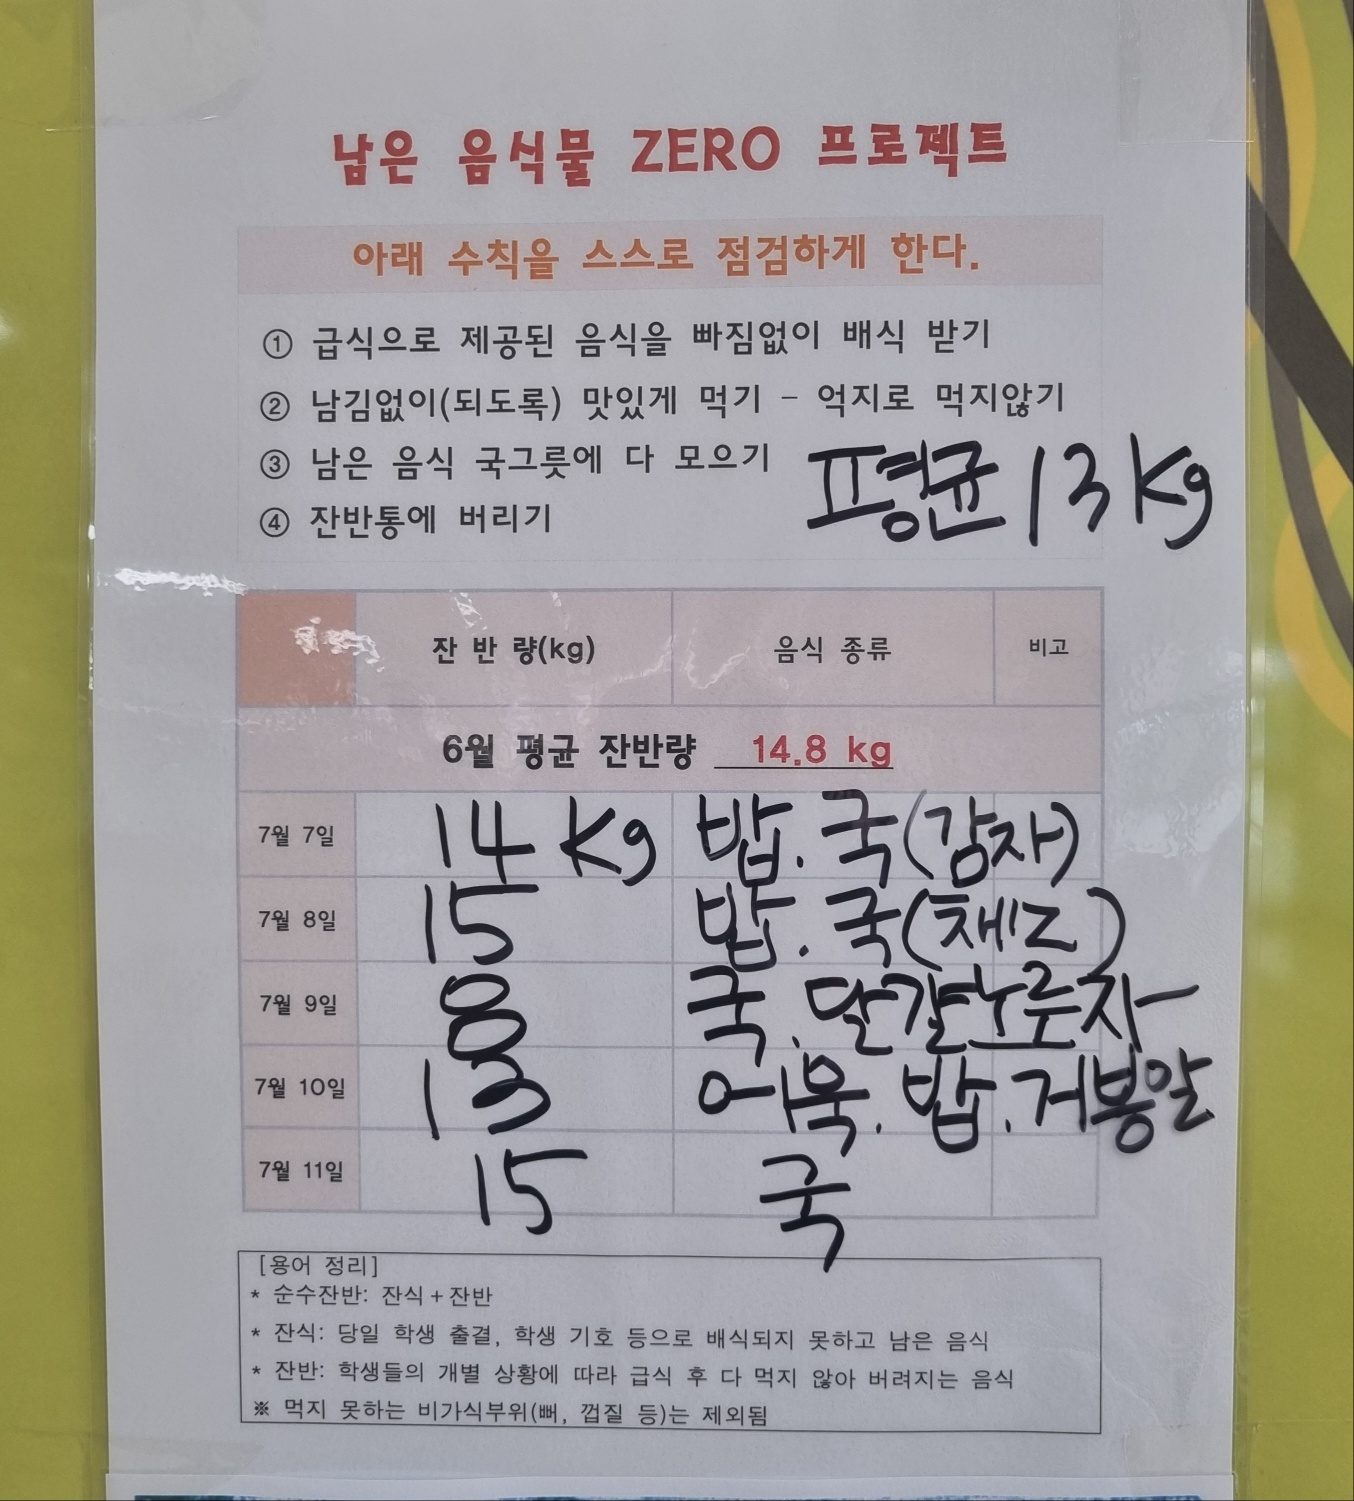 남은 음식물 ZERO 프로젝트
아래 수칙을 스스로 점검하게 한다.
① 급식으로 제공된 음식을 빠짐없이 배식 받기
② 남김없이(되도록) 맛있게 먹기 - 억지로 먹지않기
③ 남은 음식 국그릇에 다 모으기
평균 13 kg
④ 잔반통에 버리기
잔 반 량(kg) 음식 종류 비고
6월 평균 잔반량 14.8 kg
7월 7일 14 kg 밥. 국(감자)
7월 8일 15 밥. 국(채소)
7월 9일 8 국. 달걀노른자
7월 10일 13 어묵. 밥. 거봉알
7월 11일 15 국
[용어 정리]
* 순수잔반: 잔식+잔반
* 잔식: 당일 학생 출결, 학생 기호 등으로 배식되지 못하고 남은 음식
* 잔반: 학생들의 개별 상황에 따라 급식 후 다 먹지 않아 버려지는 음식
※ 먹지 못하는 비가식부위(뼈, 껍질 등)는 제외됨